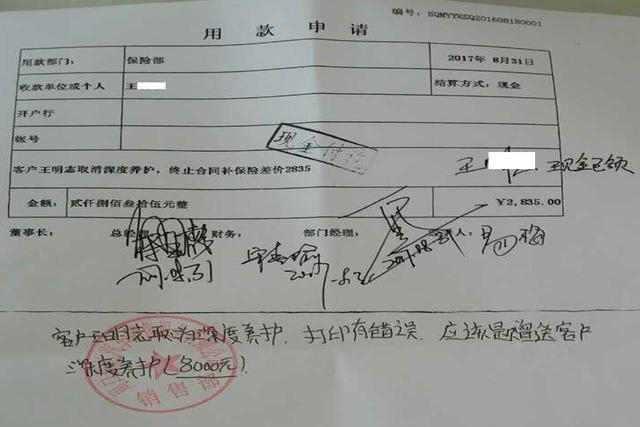 编号：SQMYYKSQ201608180001
用款申请
用款部门： 保险部 2017年 8月31日
收款单位或个人 王 结算方式：现金
开户行
帐号
现金付讫
客户王明志取消深度养护，终止合同补保险差价2835
王 现金已领
金额： 贰仟捌佰叁拾伍元整 ￥2,835.00
董事长： 总经理 财务： 部门经理： 人：
客户王明志取消深度养护，打印有错误，应该是赠送客户
深度养护(8000元)
销售部